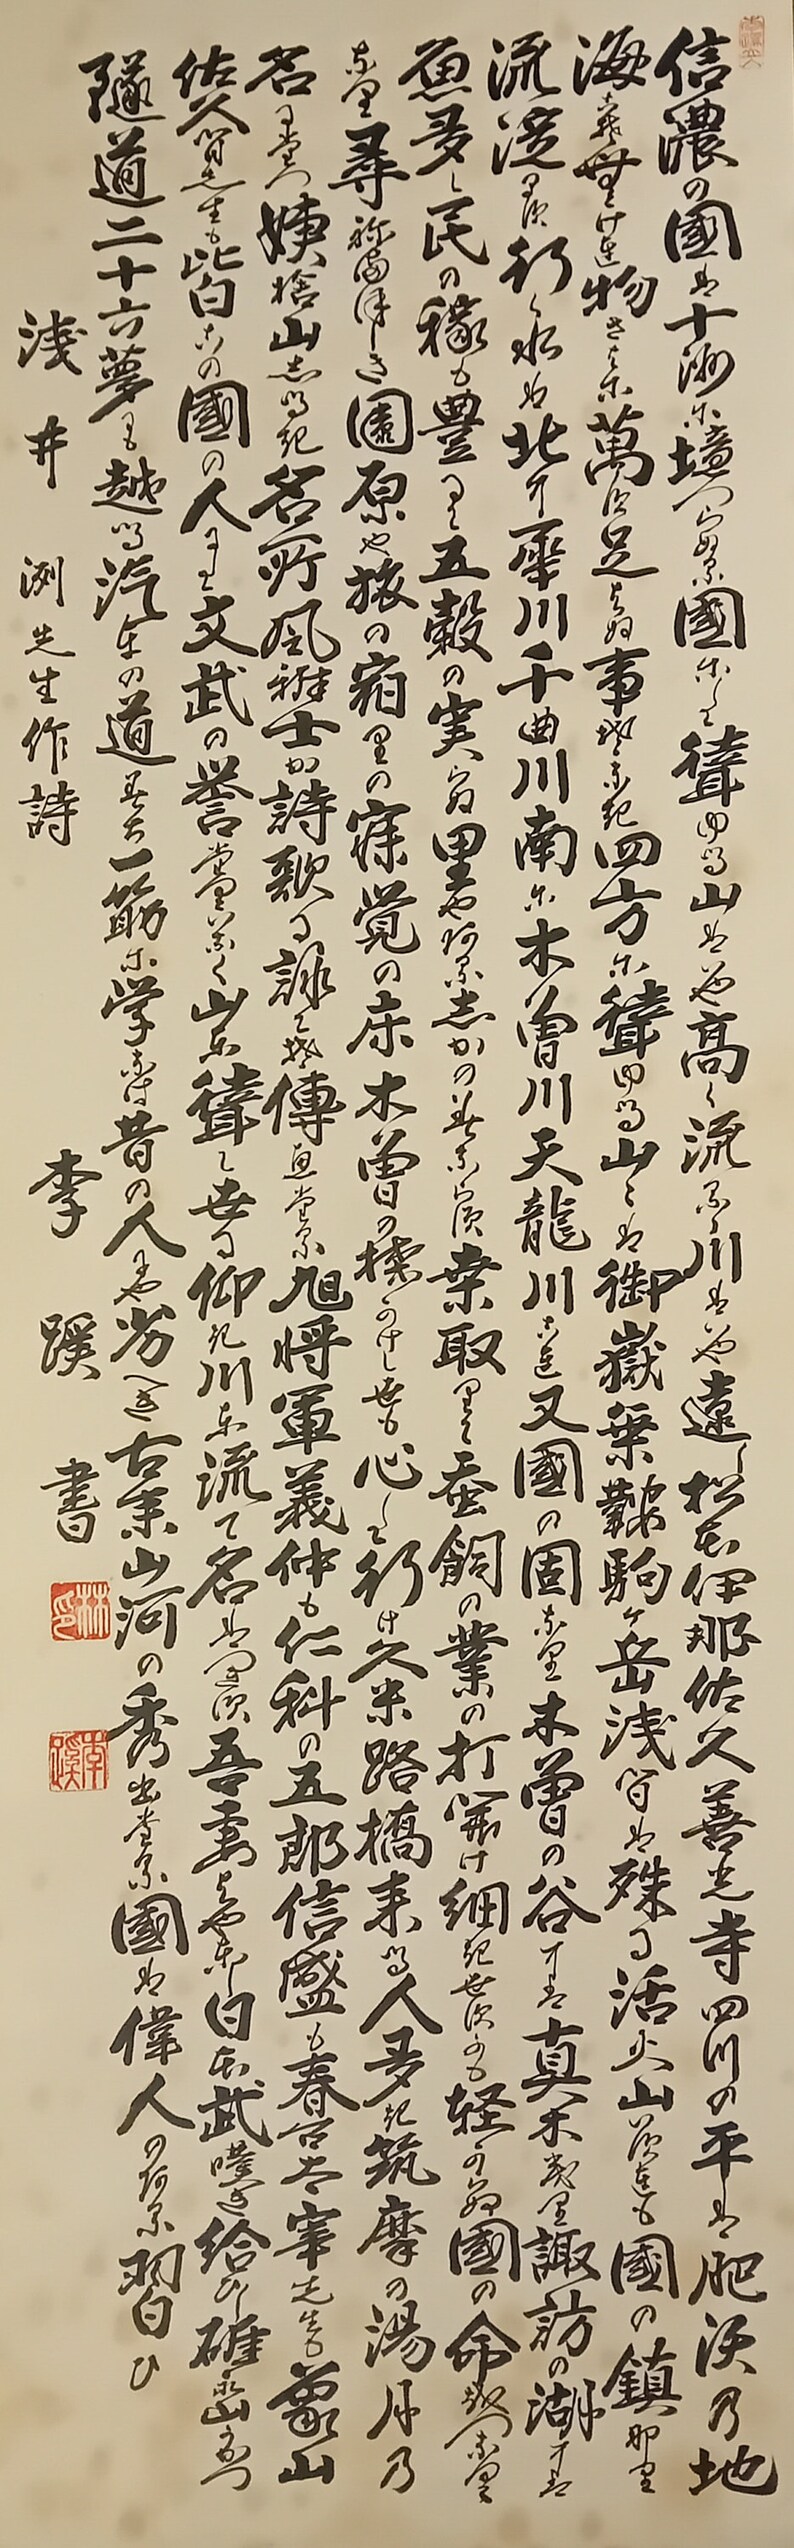 信濃の國は十州に境つらぬる國にして聳ゆる山はいや高く流るゝ川はいや遠し松本伊那佐久善光寺四つの平は肥沃乃地
海こそなけれ物さはに萬足らぬ事ぞなき四方に聳ゆる山々は御嶽乗鞍駒ケ岳浅間は殊に活火山いずれも國の鎮なり
流淀まず行く水は北に犀川千曲川南に木曽川天龍川これ又國の固なり木曽の谷には真木茂り諏訪の湖には
魚多し民の稼も豊にて五穀の実らぬ里やある志かのみならず桒取りて蚕飼の業の打開け細きよすがも軽からぬ國の命をつなぐ
なり尋ねまほしき園原や旅の宿りの寐覚の床木曽の棧かけし世も心して行け久米路橋来る人多き筑摩の湯月乃
名にたつ姨捨山志るき名所風雅士か詩歌に詠てぞ傳へたる旭将軍義仲も仁科の五郎信盛も春台太宰先生も象山
佐久間先生も皆この國の人にして文武の誉たぐいなく山と聳て世に仰ぎ川と流て名はつきず吾妻はやとし日本武嘆き給ひし碓氷山うがつ
隧道二十六夢にも越ゆる汽車の道みち一筋に学なば昔の人にや劣べき古来山河の秀出たる國は偉人のある習ひ
浅井洌先生作詩
李蹊書